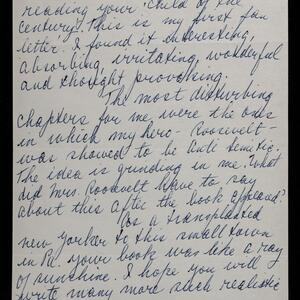 reading your "Child of the
Century". This is my first fan
letter. I found it interesting,
absorbing, irritating, wonderful
and thought provoking.
The most disturbing
chapters for me were the ones
in which my hero - Roosevelt -
was showed to be anti semitic.
The idea is grinding in me. What
did Mrs. Roosevelt have to say
about this after the book appeared?
As a transplanted
new yorker to this small town
in Pa. your book was like a ray
of sunshine. I hope you will
write many more such realistic